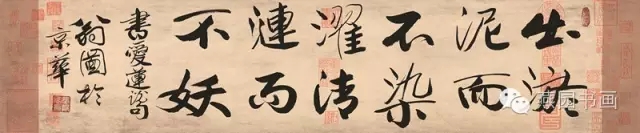 出淤
泥而
不染
濯清
漣而
不妖
書愛蓮說句
翁圖於
京華
园书画